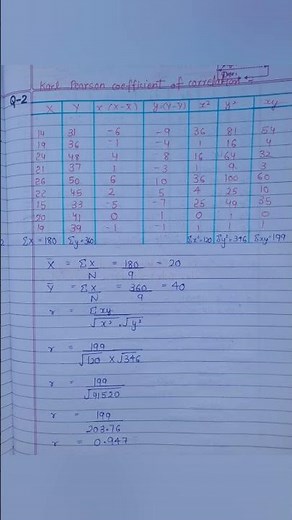 Karl Pearson coefficient of correlation
Q-2
X Y x (X-X̄) y (Y-Ȳ) x² y² xy
14 31 -6 -9 36 81 54
19 36 -1 -4 1 16 4
24 48 4 8 16 64 32
21 37 1 -3 1 9 3
26 50 6 10 36 100 60
22 45 2 5 4 25 10
15 33 -5 -7 25 49 35
20 41 0 1 0 1 0
19 39 -1 -1 1 1 1
Σx=180 Σy=360 Σx²=120 Σy²=346 Σxy=199
X̄ = Σx/N = 180/9 = 20
Ȳ = Σx/N = 360/9 = 40
r = Σxy/√x².√y²
r = 199/√120 × √346
r = 199/√41520
r = 199/203.76
r = 0.947